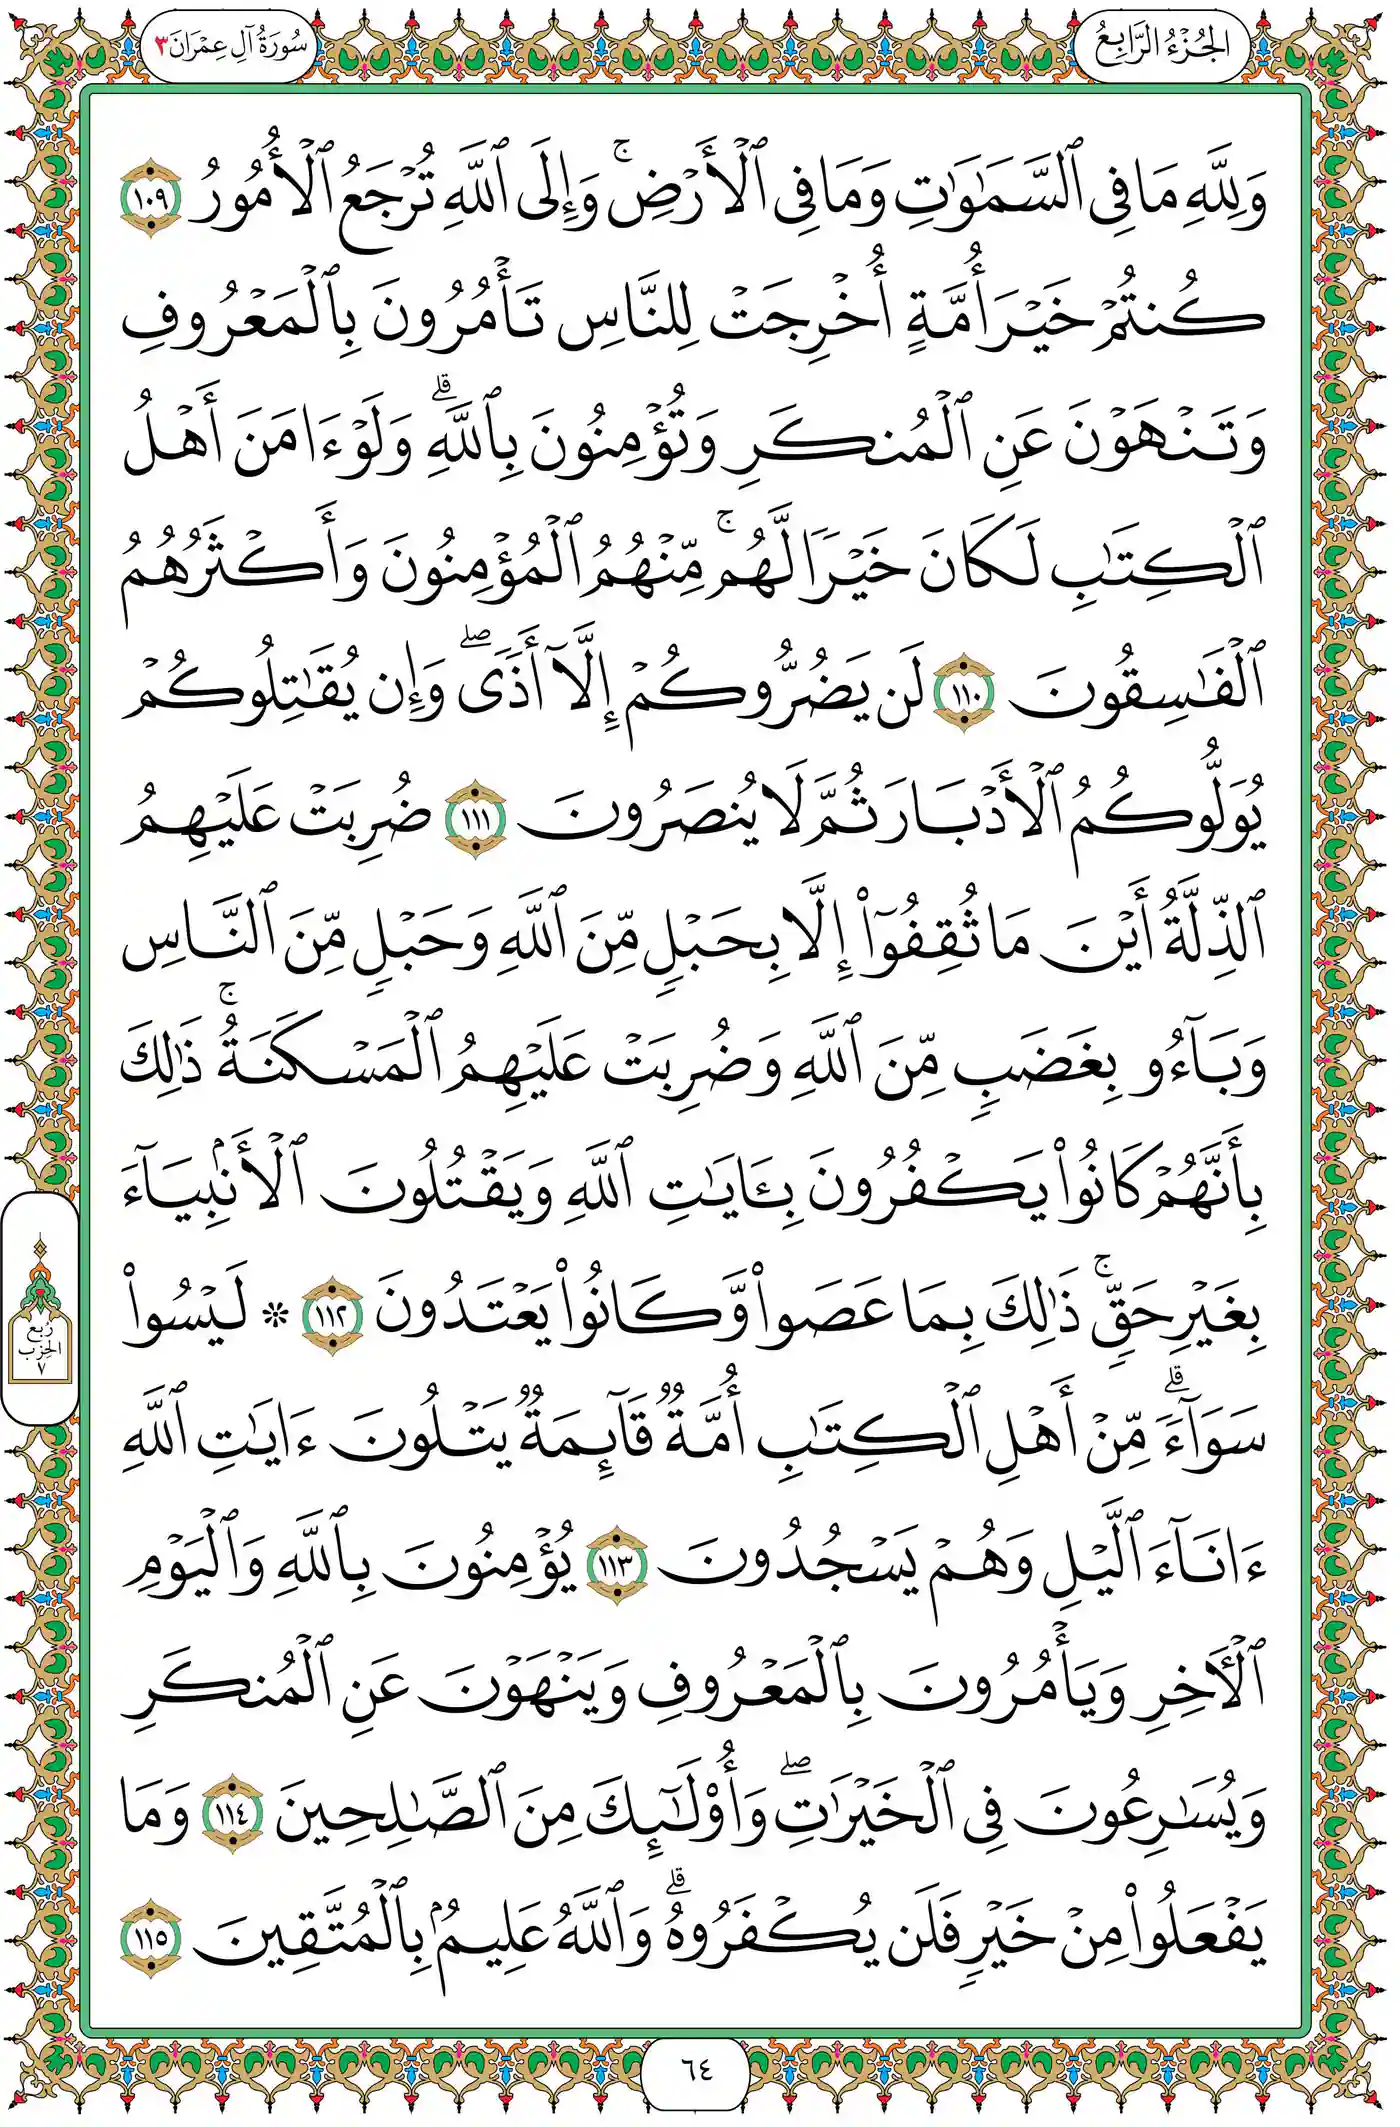 الجُزْءُ الرَّابِعُ
سُورَةُ آلِ عِمْرَانَ ٣
وَلِلَّهِ مَا فِي ٱلسَّمَٰوَٰتِ وَمَا فِي ٱلْأَرْضِۚ وَإِلَى ٱللَّهِ تُرْجَعُ ٱلْأُمُورُ ١٠٩
كُنتُمْ خَيْرَ أُمَّةٍ أُخْرِجَتْ لِلنَّاسِ تَأْمُرُونَ بِٱلْمَعْرُوفِ
وَتَنْهَوْنَ عَنِ ٱلْمُنكَرِ وَتُؤْمِنُونَ بِٱللَّهِۗ وَلَوْ ءَامَنَ أَهْلُ
ٱلْكِتَٰبِ لَكَانَ خَيْرًا لَّهُمۚ مِّنْهُمُ ٱلْمُؤْمِنُونَ وَأَكْثَرُهُمُ
ٱلْفَٰسِقُونَ ١١٠ لَن يَضُرُّوكُمْ إِلَّآ أَذًىۖ وَإِن يُقَٰتِلُوكُمْ
يُوَلُّوكُمُ ٱلْأَدْبَارَ ثُمَّ لَا يُنصَرُونَ ١١١ ضُرِبَتْ عَلَيْهِمُ
ٱلذِّلَّةُ أَيْنَ مَا ثُقِفُوٓا۟ إِلَّا بِحَبْلٍ مِّنَ ٱللَّهِ وَحَبْلٍ مِّنَ ٱلنَّاسِ
وَبَآءُو بِغَضَبٍ مِّنَ ٱللَّهِ وَضُرِبَتْ عَلَيْهِمُ ٱلْمَسْكَنَةُۚ ذَٰلِكَ
بِأَنَّهُمْ كَانُوا۟ يَكْفُرُونَ بِـَٔايَٰتِ ٱللَّهِ وَيَقْتُلُونَ ٱلْأَنۢبِيَآءَ
بِغَيْرِ حَقٍّۚ ذَٰلِكَ بِمَا عَصَوا۟ وَّكَانُوا۟ يَعْتَدُونَ ١١٢ ۞ لَيْسُوا۟
سَوَآءًۗ مِّنْ أَهْلِ ٱلْكِتَٰبِ أُمَّةٌ قَآئِمَةٌ يَتْلُونَ ءَايَٰتِ ٱللَّهِ
ءَانَآءَ ٱلَّيْلِ وَهُمْ يَسْجُدُونَ ١١٣ يُؤْمِنُونَ بِٱللَّهِ وَٱلْيَوْمِ
ٱلْـَٔاخِرِ وَيَأْمُرُونَ بِٱلْمَعْرُوفِ وَيَنْهَوْنَ عَنِ ٱلْمُنكَرِ
وَيُسَٰرِعُونَ فِي ٱلْخَيْرَٰتِۖ وَأُو۟لَٰٓئِكَ مِنَ ٱلصَّٰلِحِينَ ١١٤ وَمَا
يَفْعَلُوا۟ مِنْ خَيْرٍ فَلَن يُكْفَرُوهُۗ وَٱللَّهُ عَلِيمٌۢ بِٱلْمُتَّقِينَ ١١٥
رُبع
الحِزب
٧
٦٤